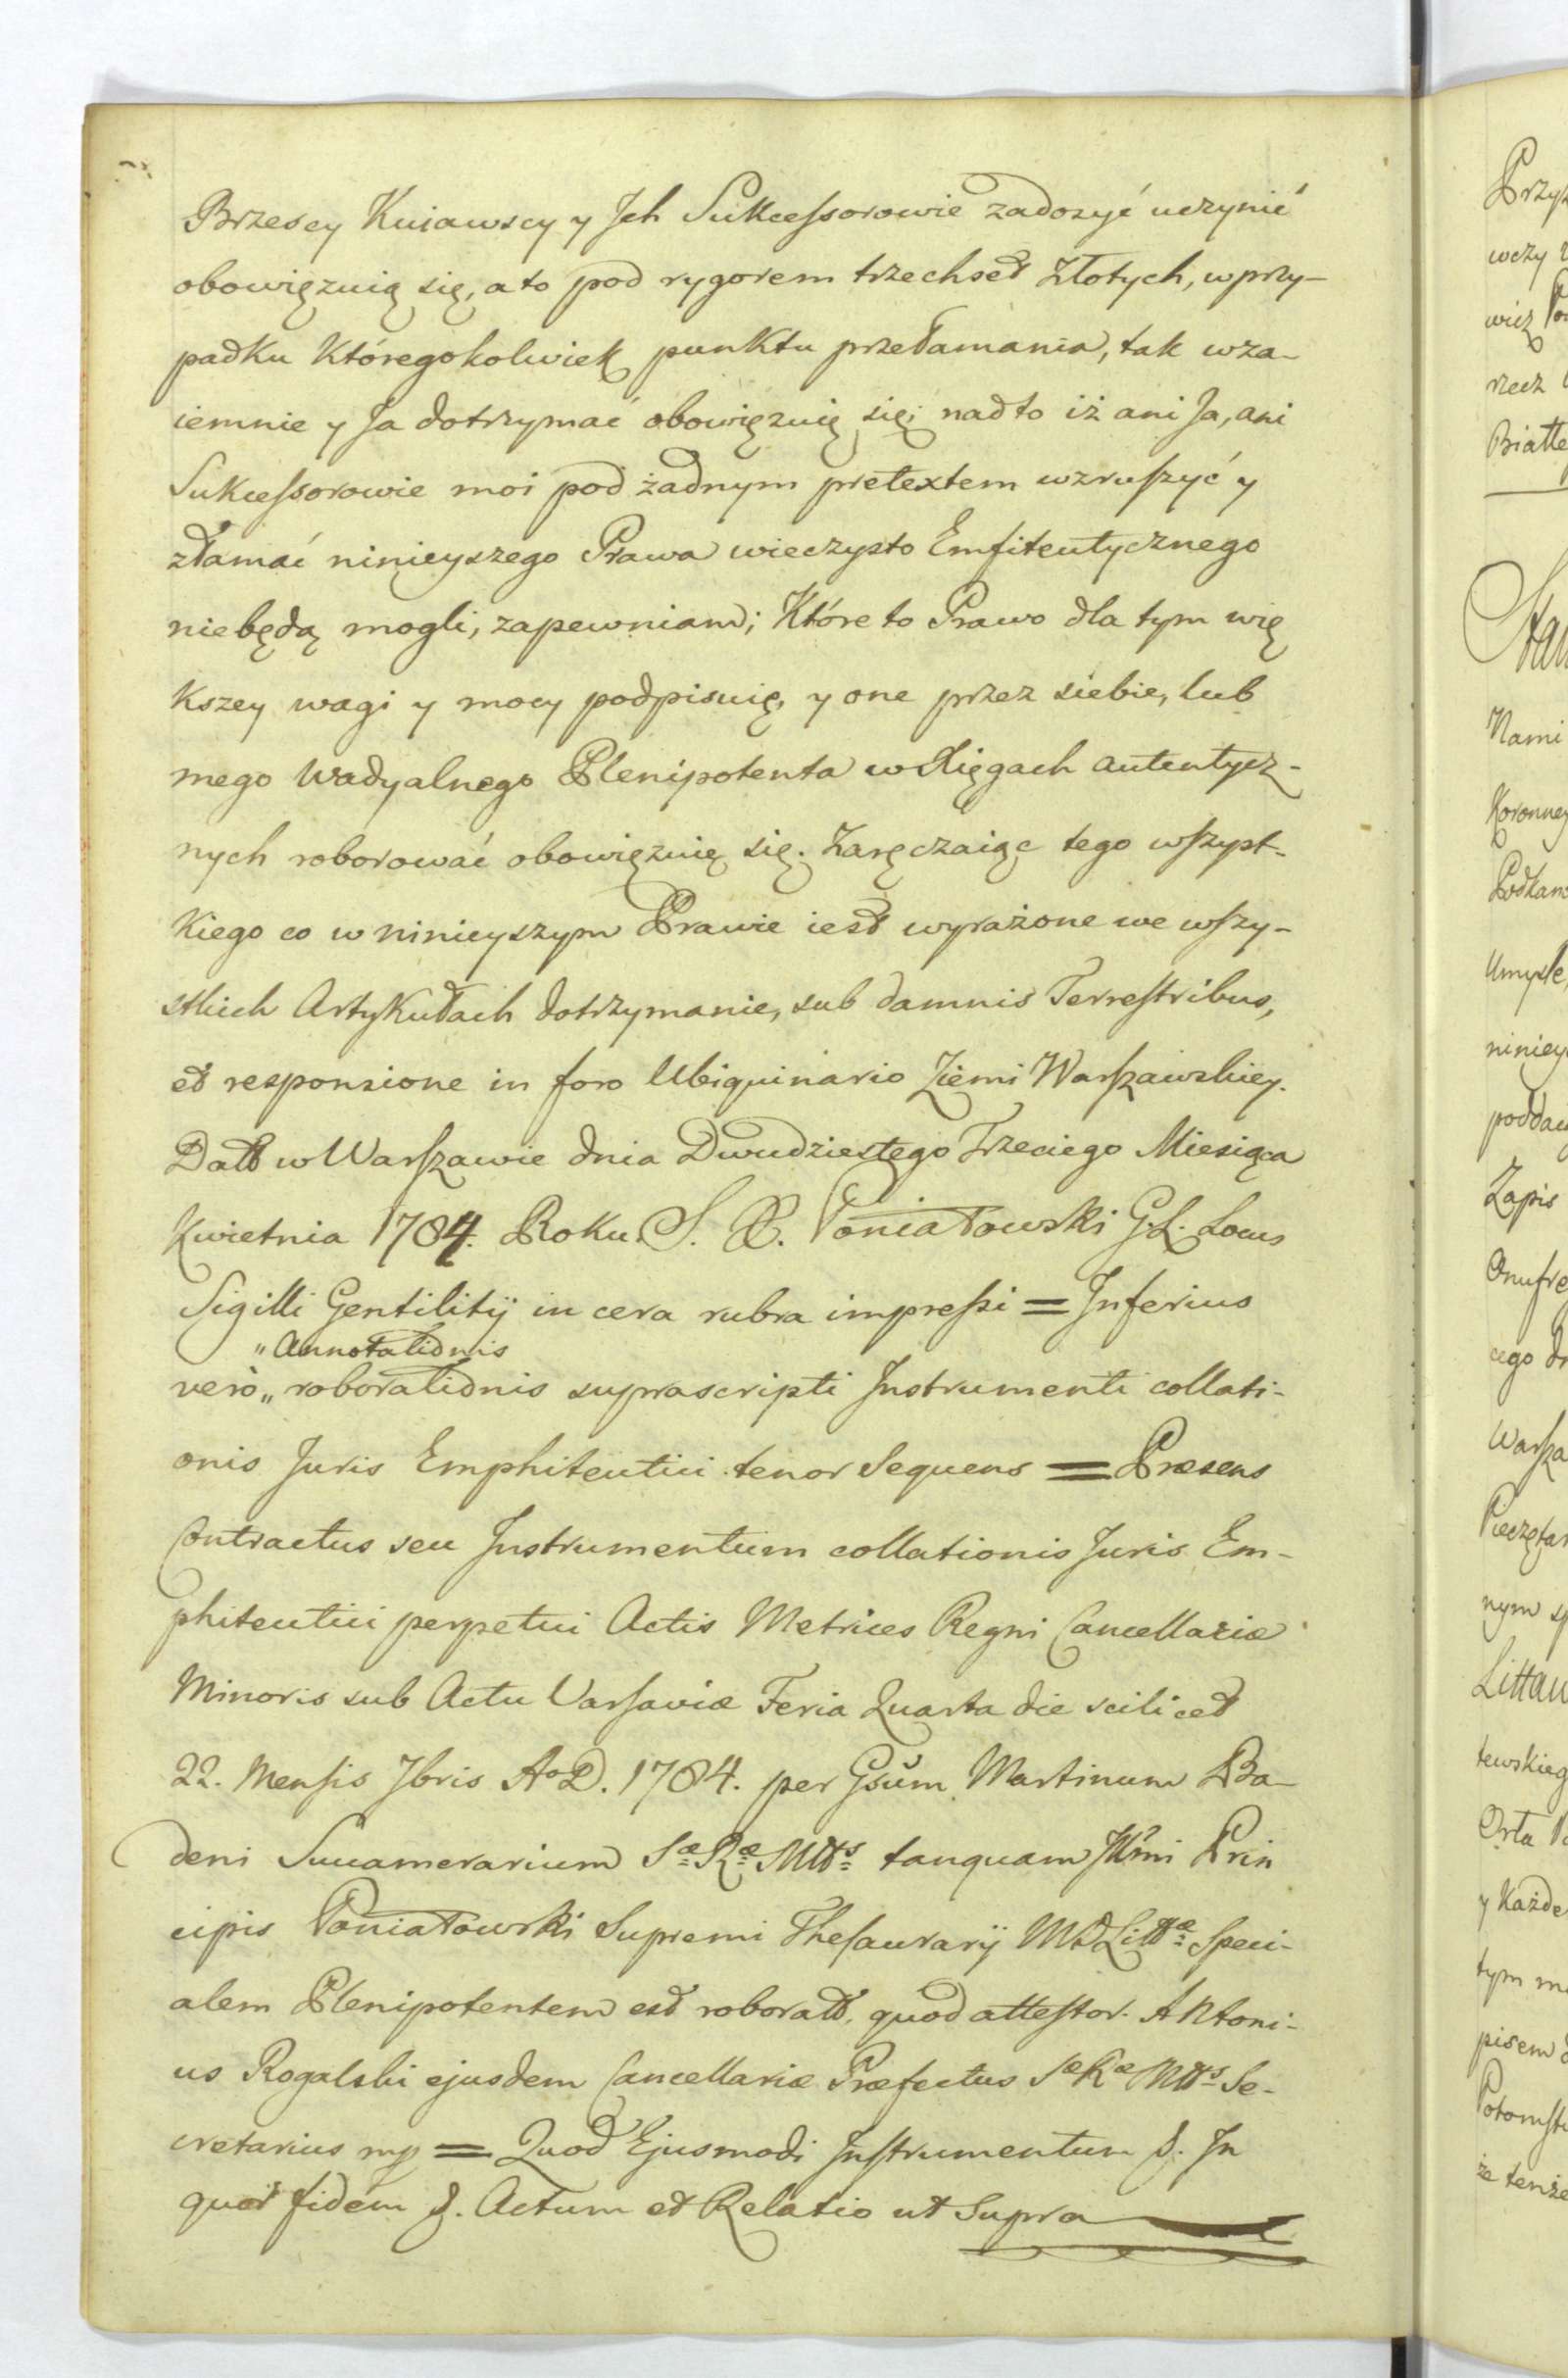 Brzescy Kuiawscy y Jch Sukcessorowie zadozyć uczynić
obowięzuią się, a to pod rygorem trzechset Złotych, w przy-
padku któregokolwiek punktu przełamania, tak wza-
iemnie y Ja dotrzymać obowięzuię się; nad to iż ani Ja, ani
Sukcessorowie moi pod żadnym pretextem wzruszyć y
złamać ninieyszego Prawa wieczysto Emfiteutycznego
niebędą mogli, zapewniam; Które to Prawo dla tym wię
kszey wagi y mocy podpisuię, y one przez siebie, lub
mego Wadyalnego Plenipotenta w Xięgach autentycz-
nych roborować obowięzuię się. Zaręczaiąc tego wszyst-
kiego co w ninieyszym Prawie iest wyrażone we wszy-
stkich Artykułach dotrzymanie, sub damnis Terrestribus,
et responsione in foro Ubiquinario Ziemi Warszawskiey.
Datt w Warszawie dnia Dwudziestego Trzeciego Miesiąca
Kwietnia 1784. Roku. S. X. Poniatowski G.L. Locus
Sigilli Gentilitij in cera rubra impressi = Inferius
„ Annotationis
verò „ roborationis suprascripti Instrumenti collati-
onis Juris Emphiteutici tenor Sequens = Præsens
Contractus seu Instrumentum collationis Juris Em-
phiteutici perpetui Actis Metrices Regni Cancellariæ
Minoris sub Actu Varsaviæ Feria Quarta die scilicet
22. Mensis 7bris Ao D. 1784. per Gsum Martinum Ba-
deni Succamerarium Sæ Ræ Mtts tanquam Jllmi Prin
cipis Poniatowski Supremi Thesaurarij MD Littæ Speci-
alem Plenipotentem est roboratt, quod attestor. Antoni-
us Rogalski ejusdem Cancellariæ Præfectus Sæ Ræ Mtts Se-
cretarius mp = Quod Ejusmodi Instrumentum &. In
quor fidem &. Actum et Relatio ut Supra
Przy
wczy
wicz
rzecz
Białł
Stan
Nami
Koronney
Podkan
Umysle
niniey
poddai
Zapis
Onufre
cego
Warsza
Pieczętar
nym
Littaw
tewskieg
Orła
y każde
tym
pisem
Potomst
że tenże